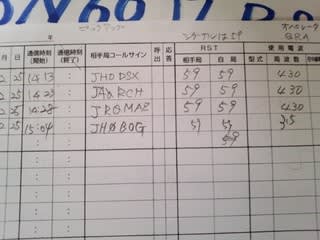 セックアップ
シグナルは59
オペレータ
QRA
月 日 通信時刻(開始) 通信時刻(終了) 相手局コールサイン 呼出 応答 RST 使用電波
相手局 自局 型式 周波数
2 25 14:13 : JH0DSX 59 59 430
2 25 : JAØRCH 59 59 430
2 25 14:28 : 59 59 430
2 25 15:04 : JHØBOG 59 59
59